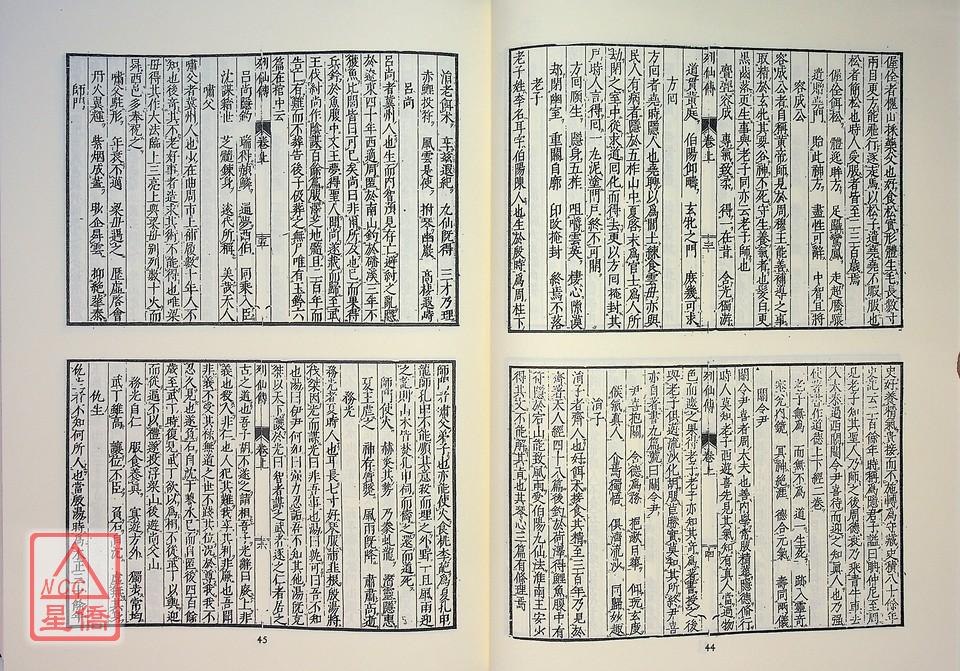 偓佺者槐山採藥父也好食松實形體生毛長數寸
兩目更方能飛行逐走馬以松子遺堯堯不暇服也
松者簡松也時人受服者皆至二三百歲焉
偓佺餌松 體逸眸方 足躡鸞鳳 走超騰驤
遺贈堯門 貽此神方 盡性可辭 中智宜將
容成公
容成公者自稱黃帝師見於周穆王能善補導之事
取精於玄牝其要谷神不死守生養氣者也髮白更
黑齒落更生事與老子同亦云老子師也
亹亹容成 專氣致柔 得一在昔 含光獨游
列仙傳 卷上 十三
道貫黃庭 伯陽仰疇 玄牝之門 庶幾可求
方回
方回者堯時隱人也堯聘以爲閭士鍊食雲母亦與
民人有病者隱於五柞山中夏啟末爲宦士爲人所
劫閉之室中從求道回化而得去更以方回掩封其
戶時人言得回一丸泥塗門戶終不可開
方回頤生 隱身五柞 咀嚼雲英 棲心隙漠
劫閉幽室 重關自廓 印改掩封 終焉不落
老子
老子姓李名耳字伯陽陳人也生於殷時爲周柱下
史好養精氣貴接而不施轉爲守藏史積八十餘年
史記云二百餘年時稱爲隱君子謚曰聃仲尼至周
見老子知其聖人乃師之後周德衰乃乘青牛車去
入大秦過西關關令尹喜待而迎之知真人也乃強
使著書作道德上下經二卷
老子無爲 而無不爲 道一生死 跡入靈奇
塞兌內鏡 冥神絕涯 德合元氣 壽同兩儀
關令尹
關令尹喜者周大夫也善內學常服精華隱德修行
時人莫知老子西遊喜先見其氣知有真人當過物
列仙傳 卷上 十四
色而遮之果得老子老子亦知其奇爲著書授之後
與老子俱遊流沙化胡服苣勝實莫知其所終尹喜
亦自著書九篇號曰關令尹
尹喜抱關 含德爲務 挹漱日華 仰玩玄度
候氣真人 介焉獨悟 俱濟流沙 同歸妙
涓子
涓子者齊人也好餌朮接食其精至三百年乃見於
齊著天人經四十八篇後釣於荷澤得鯉魚腹中有
符隱於宕山能致風雨受伯陽九仙法淮南王安少
得其文不能解其旨也其琴心三篇有條理焉
44
涓老餌朮 享茲遐紀 九仙既傳 三才乃理
赤鯉投符 風雲是使 拊琴幽巖 高棲遐峙
呂尚
呂尚者冀州人也生而內智預見存亡避紂之亂隱
於遼東四十年西適周匿於南山釣於磻溪三年不
獲魚比閭皆曰可已矣尚曰非爾所及也已而果得
兵鈐於魚腹中文王夢得聖人聞尚遂載而歸至武
王伐紂尚作陰謀百餘篇服澤芝地髓且二百年而
告亡有難而不葬後子伋葬之無尸唯有玉鈐六
篇在棺中云
列仙傳 卷上 十五
呂尚隱釣 瑞得頳鱗 通夢西伯 同乘入臣
沈謀籍世 芝髓鍊身 遠代所稱 美哉天人
嘯父
嘯父者冀州人也少在曲周市上補履數十年人不
知也後奇其不老好事者造求其術不能得也唯梁
母得其作火法臨上三亮上與梁母別列數十火而
昇西邑多奉祀之
嘯父駐形 年衰不邁 梁母遇之 歷虛啟會
丹火翼輝 紫烟成蓋 眇企昇雲 抑絕華泰
師門
師門者嘯父弟子也亦能使火食桃李葩爲夏孔甲
龍師孔甲不能順其意殺而埋之外野一旦風雨迎
之訖則山木皆焚孔甲祠而禱之還而道死
師門使火 赫炎其勢 乃豢虬龍 潛靈隱惠
夏王虐之 神存質斃 風雨既降 肅肅高逝
務光
務光者夏時人也耳長七寸好琴服蒲韭根殷湯將
伐桀因光而謀光曰非吾事也湯曰孰可曰吾不知
也湯曰伊尹何如曰強力忍詬吾不知其他湯既克
桀以天下讓於光曰智者謀之武者遂之仁者居之
列仙傳 卷上 十六
古之道也吾子胡不遂之請相吾子光辭曰廢上非
義也殺人非仁也人犯其難我享其利非廉也吾聞
非義不受其祿無道之世不踐其位況於尊我我不
忍久見也遂負石自沈于蓼水已而自匿後四百餘
歲至武丁時復見武丁欲以爲相不從武丁以輿迎
而從逼不以禮遂投浮梁山後遊尚父山
務光自仁 服食養真 冥遊方外 獨步常均
武丁雖高 讓位不臣 負石自沈 虛無
仇生
仇生者不知何所人也當殷湯時爲木正三十餘年
45
NCC
星僑